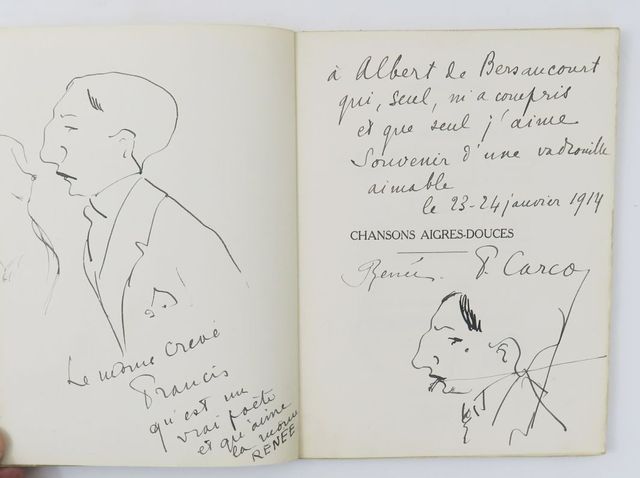 Le mome crevé
Francis
qu'est un
vrai poète
et qu'aime
la mome
RENÉE
à Albert de Bersaucourt
qui, seul, m'a compris
et que seul j'aime
Souvenir d'une vadrouille
aimable
le 23-24 janvier 1914
CHANSONS AIGRES-DOUCES
Renée. F. Carco